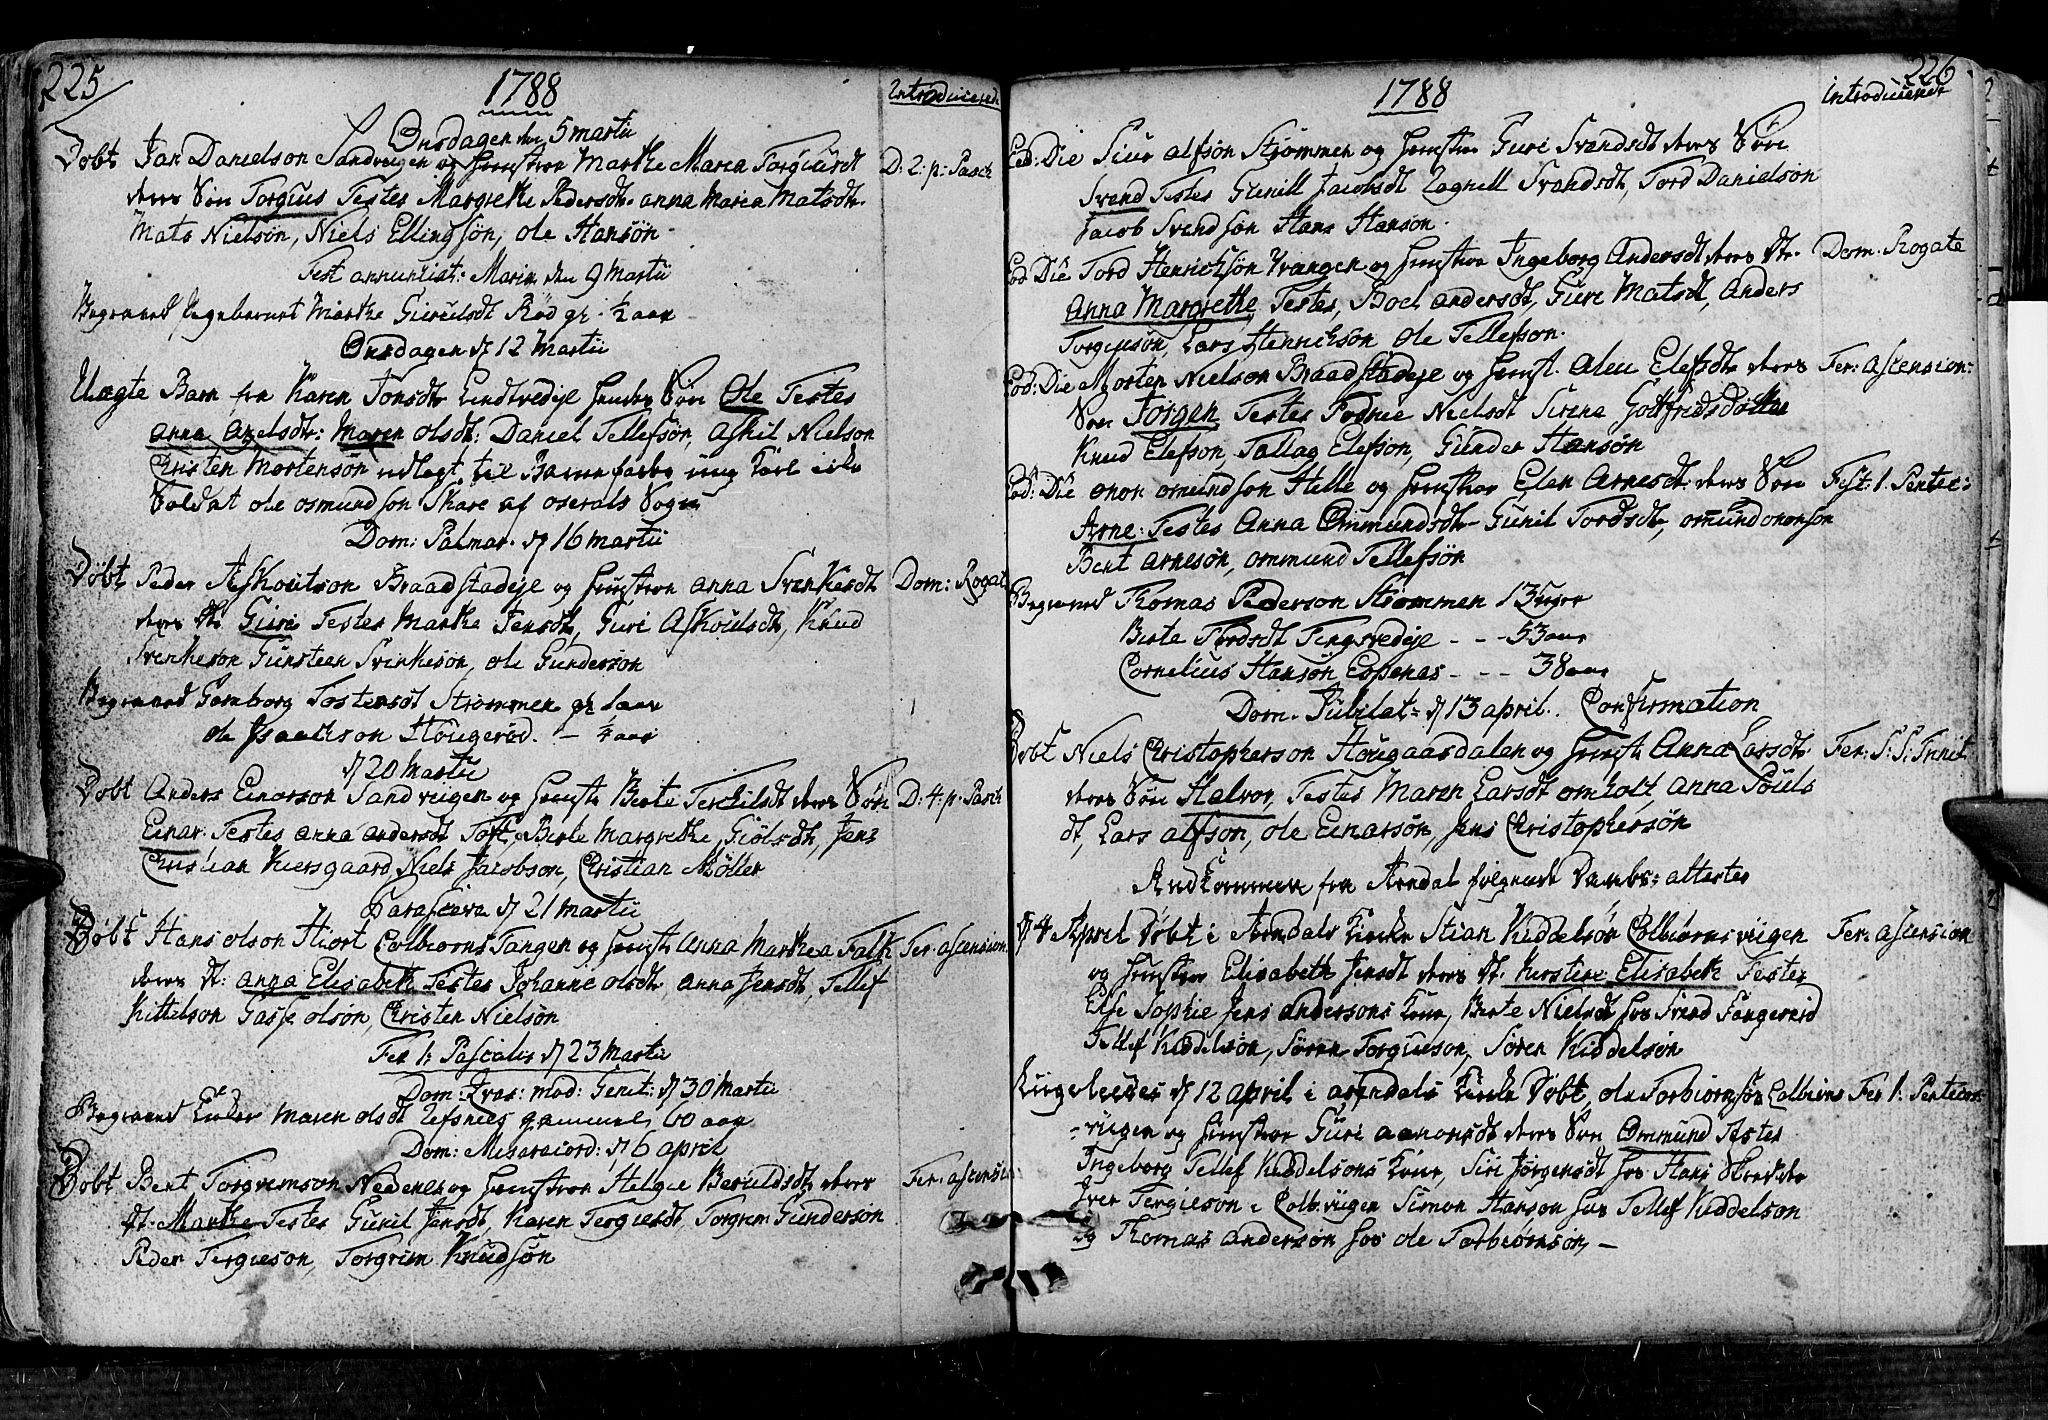 225
1788
Introducered
Onsdagen den 5 martii
Døbt Jan Danielson Sandviigen og Hustroe Marthe Maria Torgiusdt D: 2: p: Pasch
deres Søn Torgius Testes Margrethe Pedersdt. anna Maria Matsdt.
Mats Nielsøn, Niels Ellingsøn, ole Hansøn
Fest annunciat: Mariæ den 9 Martii
Begraved Pigebarnet Marthe Giruldsdt Rød gl. 1/2 aar
Onsdagen d 12 Martii
Uægte Barn fra Karen Tonsdt Lindtvedeje hendes Søn Ole Testes
anna axelsdt: Maren olsdt: Daniel Tellefsøn, Askil Nielson
Cristen Mortensøn udlagt til Barnefader ung Karl
Soldat ole osmundson Skare af oserals Sogn
Dom: Palmar. d 16 martii
Døbt Peder Askoutson Braadstadeje og Hustroe anna Svenkesdt Dom: Rogat
deres dt. Guri Testes Marthe Jensdt, Guri Askoulsdt, Knud
Svenkeson Gunsteen Svinkesøn, ole Gunderson
Begraved Gonborg Tostensdt Strømmen gl 1 aar
ole Isaachson Hougerød. - 1/4 aar
d 20 Martii
Døbt Anders Einarson Sandviigen og Hustr. Berte Terkilsdt deres Søn D: 4: p: Pasch
Einar. Testes anna andersdt Toft, Berte Margrethe, Giølsdt, Jens
Christian Kiersgaard, Niels Jacobson, Christian Møller
Parasceve d 21 martii
Døbt Hans olson Hiort Colbiørns Tangen og Hustr. Anna Marthea Falk Fer: ascension:
deres dt: anna Elisabeth Testes Johanne olsdt, anna Jensdt, Tellef
Kittelson Gasse olson, Christen Nielsøn
Fer 1: Pascalis d 23 Martii
Dom: Qvas: mod: Genit: d 30 Martii
Begraved Enker Maren olsdt Refsnes gammel, 60 aar
Dom: Miseraiord: d 6 april
Døbt Bent Torgremson Nedenes og Hustroe Helge Beruldsdt, deres Fer: ascensio
dt: Marthe Testes Gunil Jensdt, Karen Tergiesdt, Torgrim Gundersøn
Peder Tergieson, Torgrim Knudsøn
226
1788
Introducered
Eod: Die Siur alfsøn Strømmen og Hustroe Guri Svendsdt deres Søn
Svend Testes Gunill Jacobsdt Ragnill Svendsdt, Tord Danielsøn
Jacob Svendsøn Hans Hanson.
Eod Die Tord Henricksøn Vrangen og Hustroe Ingeborg Andersdt deres dt. Dom. Rogate
Anna Margrethe, Testes, Boel andersdt, Guri Matsdt, Anders
Torgiusøn, Lars Henrichson ole Tellefson.
Eod: Die Morten Nielsøn Braadstadeje og Hust. alen Elefsdt deres Fer: ascension:
Søn Jørgen Testes Fodne Nielsdt Sirena Gotfridsdotter
Knud Elefson, Tallag Elefson, Gunder Hansøn
Eod: Die onon omundson Helle og Hustroe Elen Arnesdt: deres Søn Fest: 1. Pentec:
Arne: Testes Anna Ommundsdt Gunil Tordsdt, omund ononson
Bent arnesøn, ommund Tellefsøn
Begraved Thomas Pederson Strømmen 13 uger
Berte Tordsdt Tingsvedeje - - - 53 aar
Cornelius Hansøn Espenas - - - 38 aar
Dom. Jubilat: d 13 april. Confirmation
Døbt Niels Christopherson Hougaardalen og Hust Anna Larsdt Fer: S: S: Trinit
deres Søn Halvor, Testes Maren Larsdt omholt anna Pouls
dt, Lars alfson, ole Einarsøn, Jens Christophersøn
Indkommen fra Arndal følgende Daabs: attester
d 4 April Døbt i Arndals Kircke Stian Kiddelsøn Colbiørnsviigen Fer: ascension
og Hustroe Elisabeth Jensdt deres dt. Kirstine Elisabeth Testes
Else Sophie Jens andersøns Kone, Berte Nielsdt hos Svend Songereid
Tellef Kiddelsøn, Søren Torgiuson, Søren Kiddelsøn
Ligeleedes d 12 april i arendals Kircke Døbt, ole Torbiørnsøn Colbiørns Fer 1: Pentecos
-viigen og Hustroe Guri aanonsdt deres Søn Ommund Testes
Ingeborg Tellef Kiddelsøns Kone, Siri Jørgensdt hos Hans
Iver Tergiesøn i Colbviigen Simon Hanson hos Tellef Kiddelson
og Thomas andersøn hos ole Torbiørnsøn, -